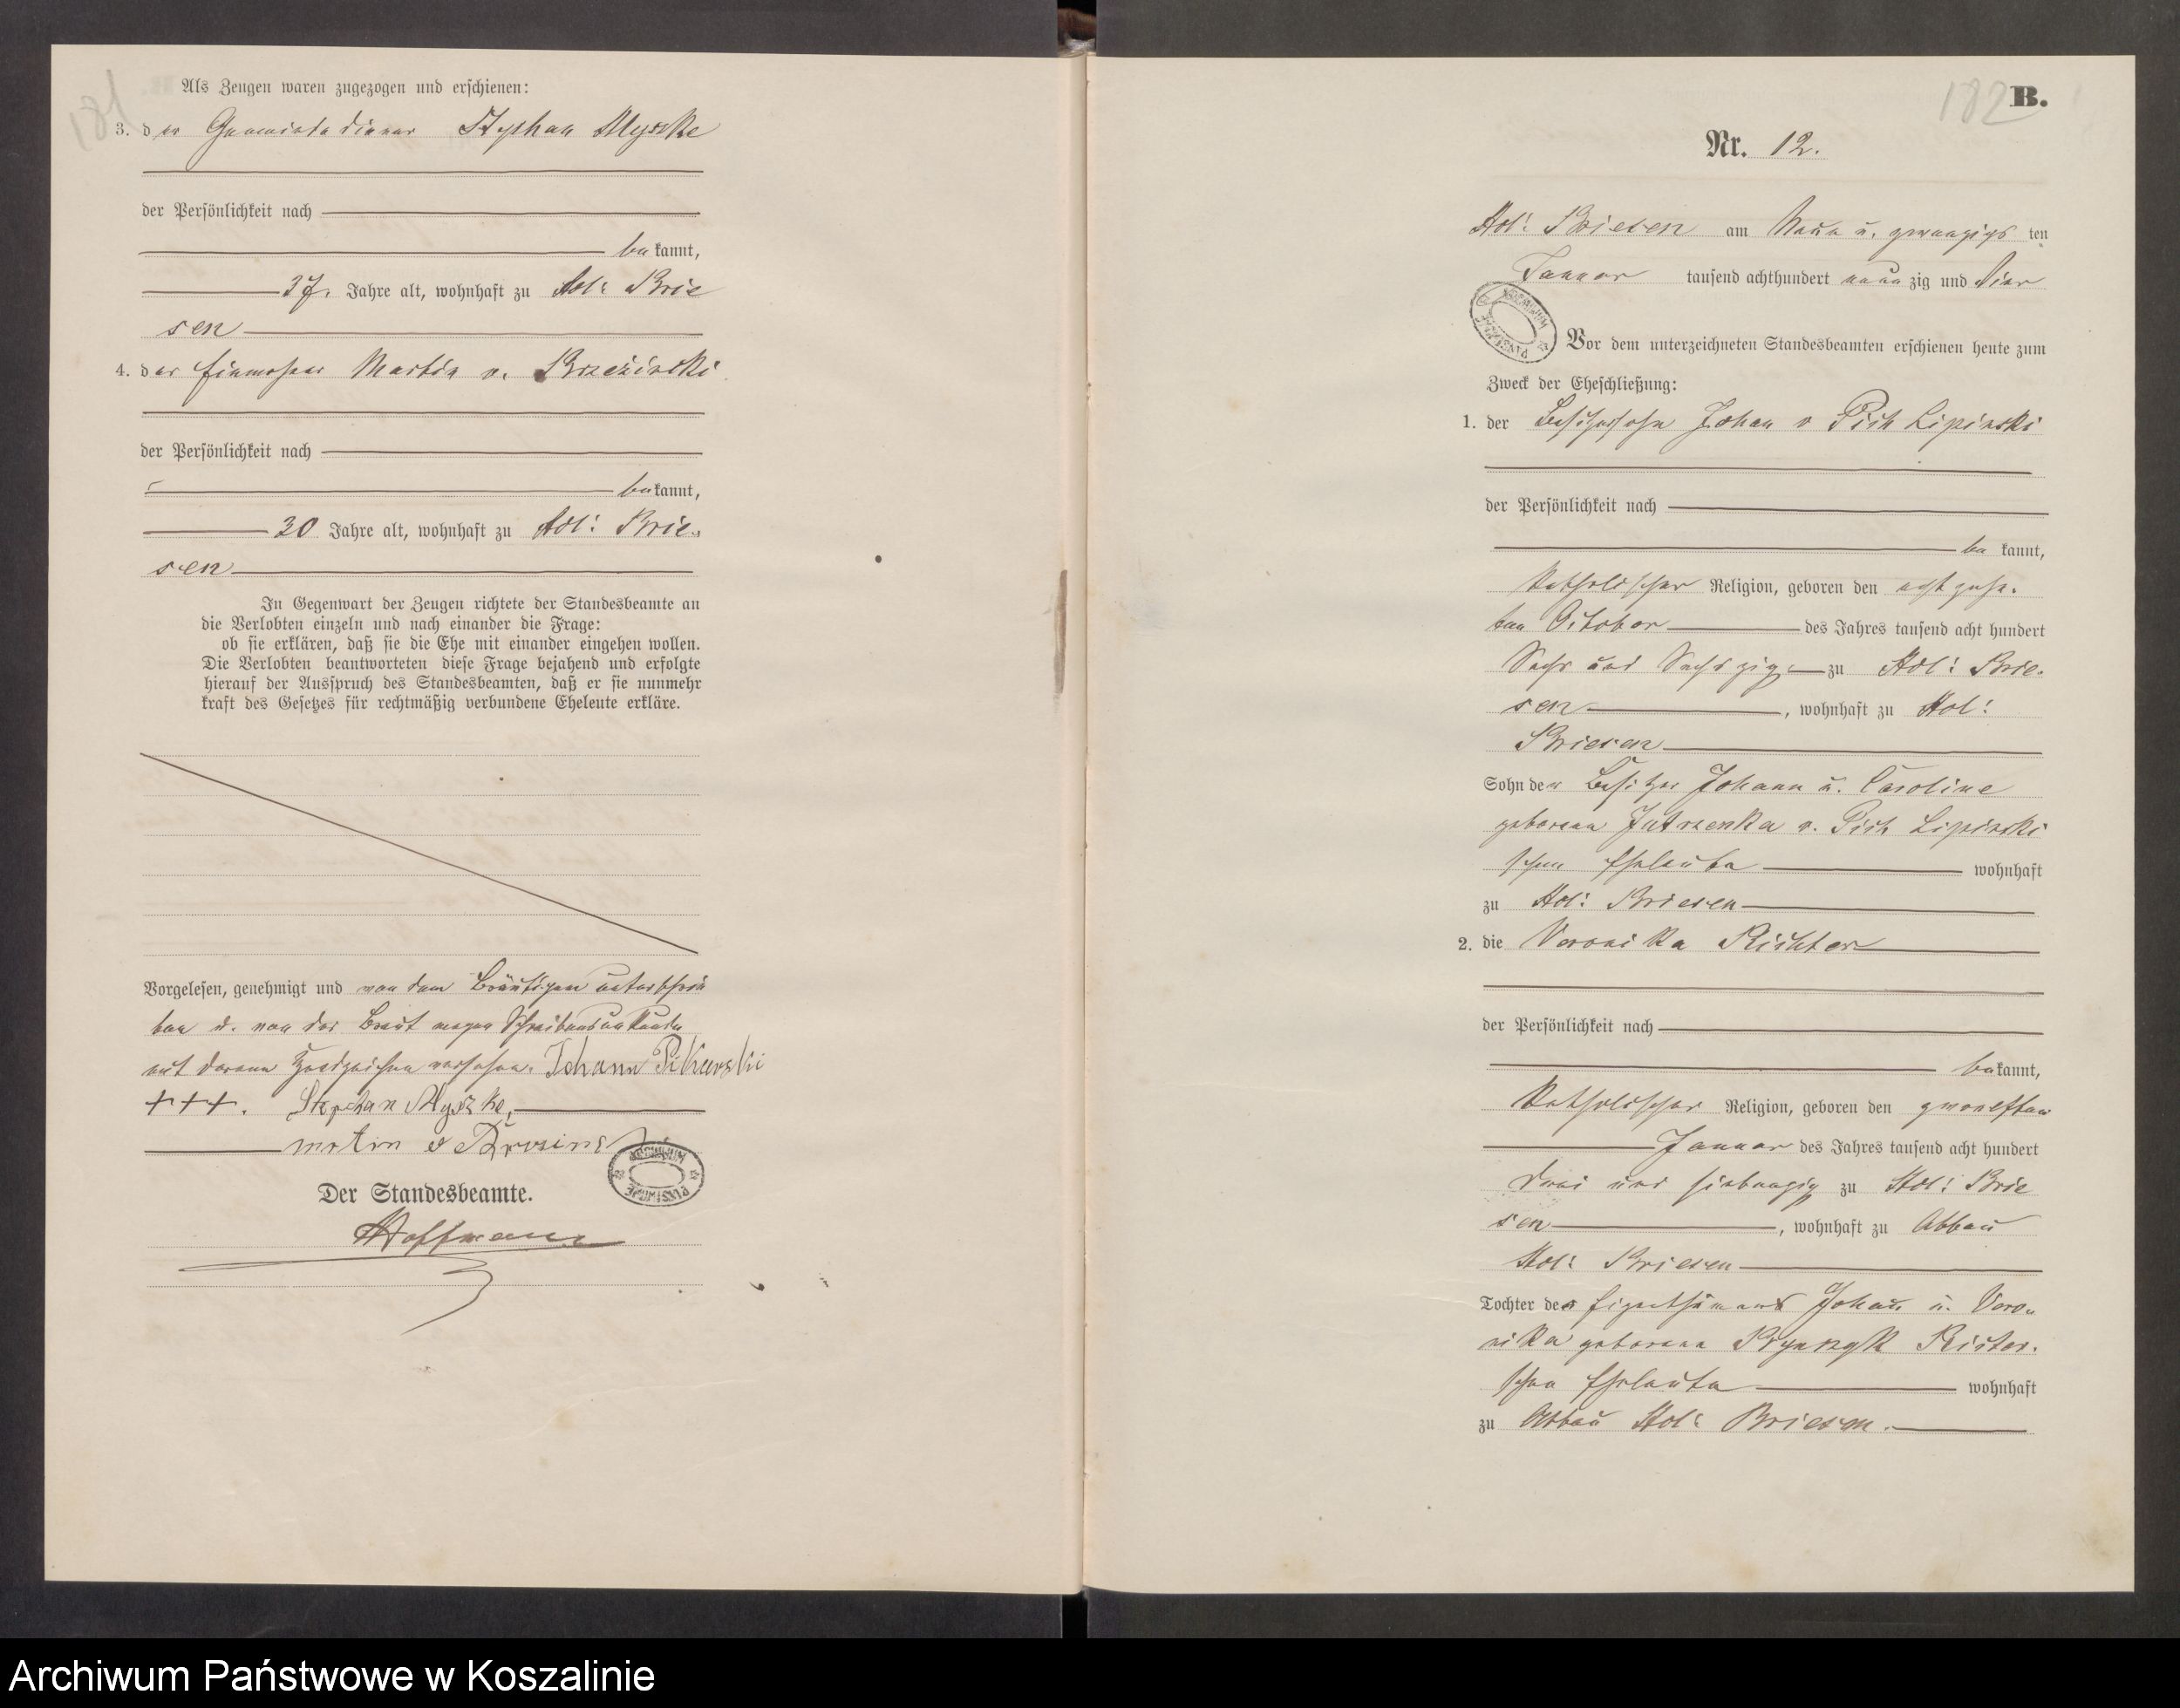 181
Als Zeugen waren zugezogen und erschienen:
3. der Gemeindediener Stephan Myszke
der Persönlichkeit nach
bekannt,
37 Jahre alt, wohnhaft zu Adl: Brie
sen
4. der Einwohner Martin v. Brzezinski
der Persönlichkeit nach
bekannt,
30 Jahre alt, wohnhaft zu Adl: Brie-
sen
In Gegenwart der Zeugen richtete der Standesbeamte an
die Verlobten einzeln und nach einander die Frage:
ob sie erklären, daß sie die Ehe mit einander eingehen wollen.
Die Verlobten beantworteten diese Frage bejahend und erfolgte
hierauf der Ausspruch des Standesbeamten, daß er sie nunmehr
kraft des Gesetzes für rechtmäßig verbundene Eheleute erkläre.
Vorgelesen, genehmigt und von dem Bräutigam unterschrie
ben u. von der Braut wegen Schreibensunkunde
mit deren Handzeichen versehen. Johann Pikarski
+++. Stephan Myszke,
Der Standesbeamte.
Hoffmann
182
B.
Nr. 12.
Adl: Briesen am Neun u. zwanzigs ten
Januar tausend achthundert neun zig und Vier
Vor dem unterzeichneten Standesbeamten erschienen heute zum
Zweck der Eheschließung:
1. der Besitzersohn Johan v Pich Lipinski
der Persönlichkeit nach
be kannt,
Katholischer Religion, geboren den achtzehn-
ten October des Jahres tausend acht hundert
Sechs und Sechszig zu Adl: Brie-
sen, wohnhaft zu Adl:
Briesen
Sohn der Besitzer Johann u. Caroline
geborene Jutrzenka v. Pich Lipinski
schen Eheleute wohnhaft
zu Adl: Briesen
2. die Veronika Richter
der Persönlichkeit nach
bekannt,
Katholischer Religion, geboren den zwoelften
Januar des Jahres tausend acht hundert
drei und siebenzig zu Adl: Brie
sen, wohnhaft zu Abbau
Adl: Briesen
Tochter des Eigenthümers Johan u. Vero-
nika geborene Richter-
schen Eheleute wohnhaft
zu Abbau Adl: Briesen.
Archiwum Państwowe w Koszalinie